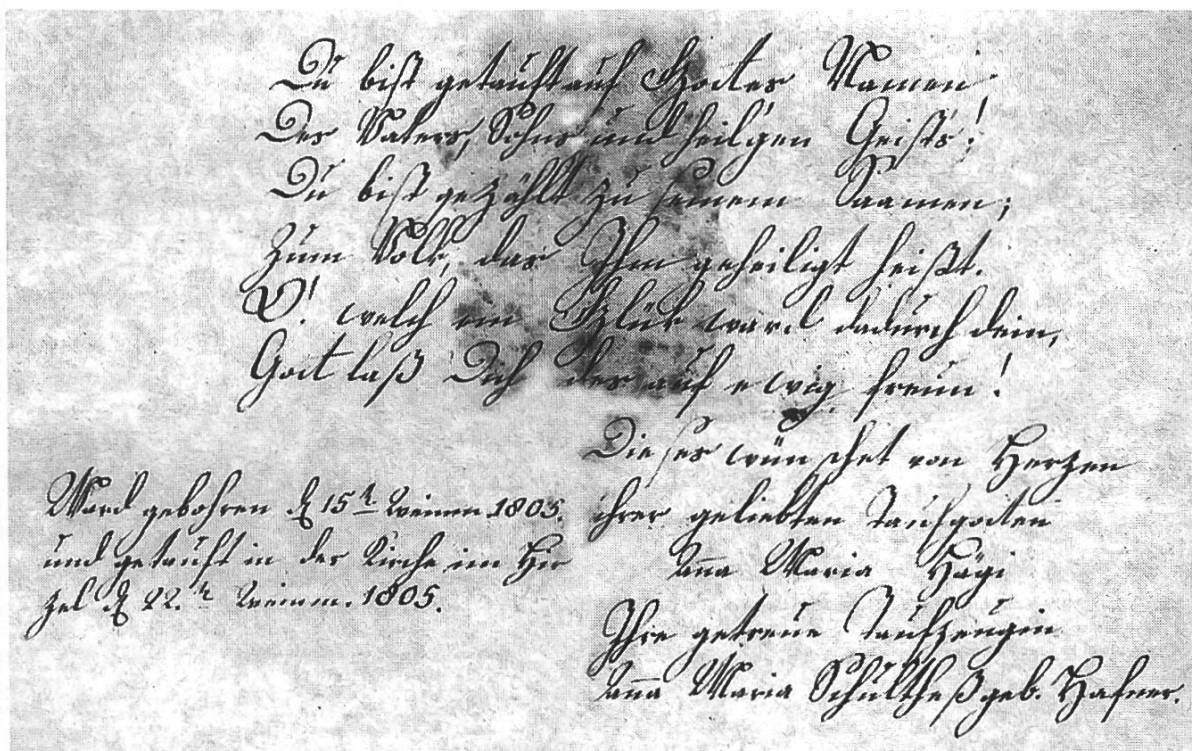 Du bist getauft auf Gottes Namen
Des Vaters, Sohns und heilgen Geists!
Du bist gezählt zu seinem Saamen;
Zum Volk, das Ihm geheiligt heißt.
O! welch ein Glük ward dadurch dein,
Gott laß Dich des auf ewig freun!
Dieses wünschet von Herzen
ihrer geliebten Taufgotten
Anna Maria Hägi
Ihre getreue Taufzeugin
Anna Maria Schultheß geb. Hafner.
Ward gebohren d. 15.t. Weinm. 1805.
und getauft in der Kirche im Hir
zel d. 22.t. Weinm. 1805.